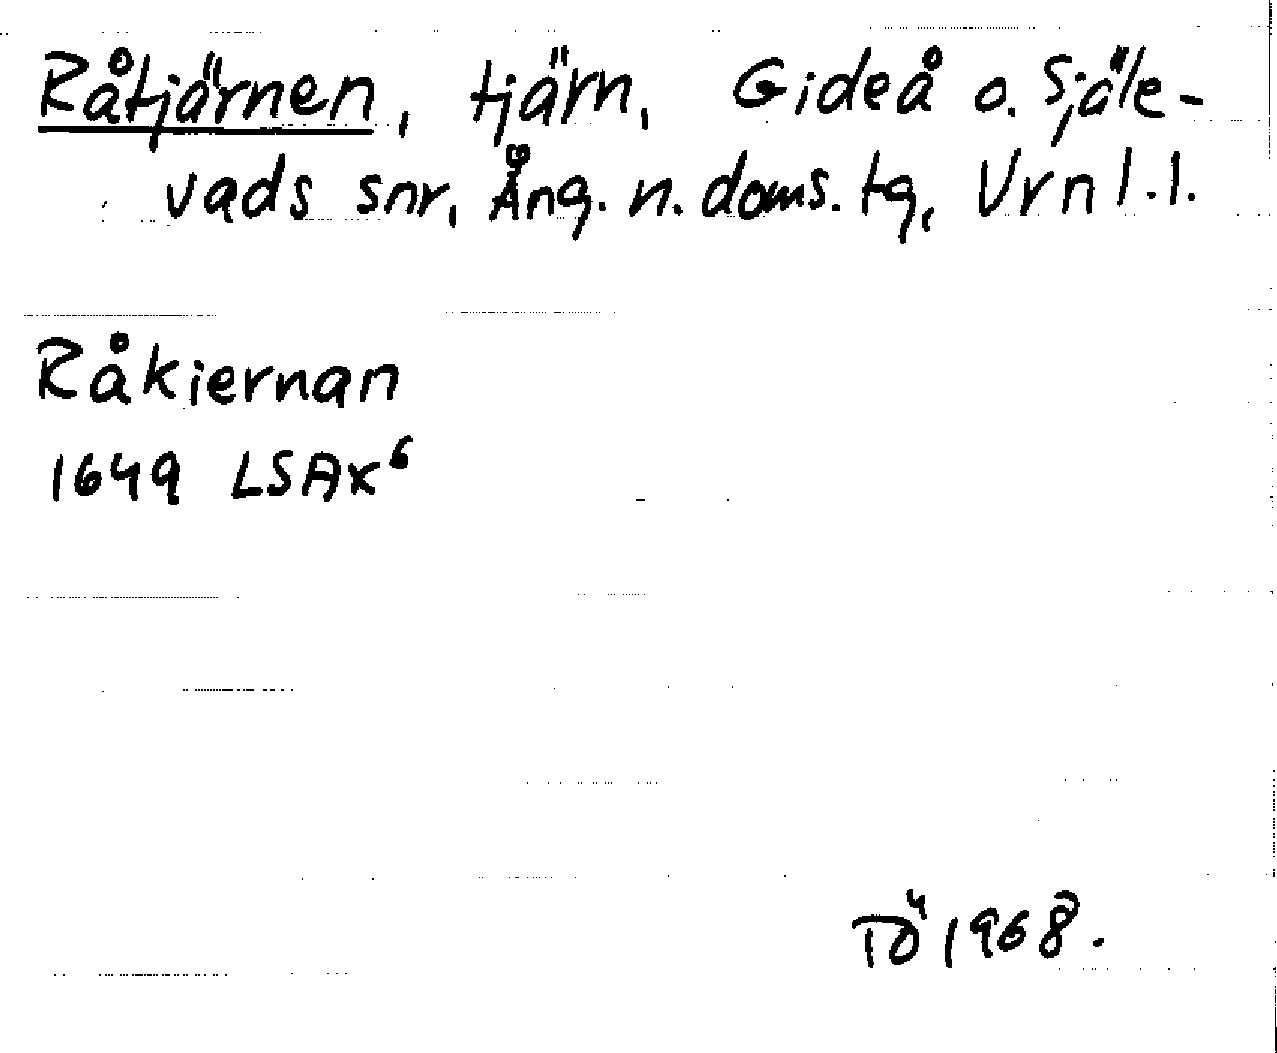 Råtjärnen, tjärn, Gideå o. Själe-
vads snr, Ång. n. doms. tg, Vrnl. l.
Råkiernan
1649 LSAK⁶
TÖ 1968.